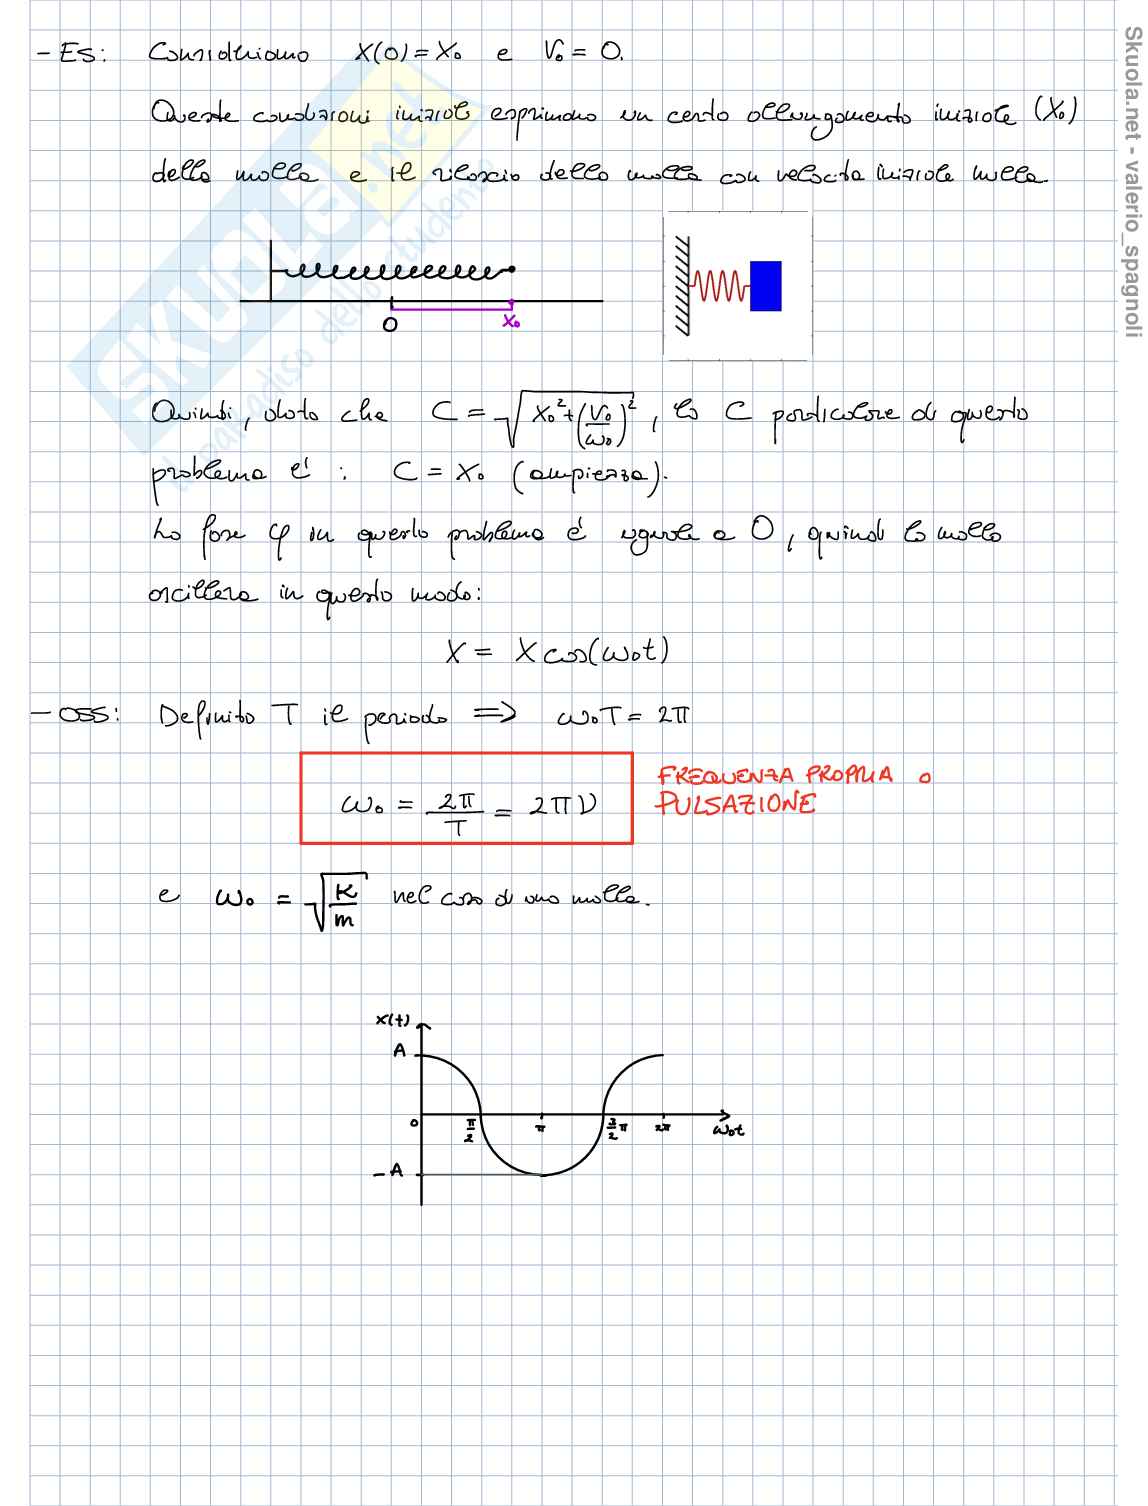 - Es: Consideriamo X(0) = X₀ e V₀ = 0.
Queste condizioni iniziali esprimono un certo allungamento iniziale (X₀)
della molla e il rilascio della molla con velocità iniziale nulla.
0 X₀
Quindi, dato che C = √(X₀² + (V₀/ω₀)²), la C particolare di questo
problema é : C = X₀ (ampiezza).
La fase φ in questo problema é uguale a 0, quindi la molla
oscillera in questo modo:
X = X cos(ω₀t)
- OSS: Definito T il periodo ⟹ ω₀T = 2π
ω₀ = 2π/T = 2πν
FREQUENZA PROPRIA o
PULSAZIONE
e ω₀ = √(K/m) nel caso di una molla.
x(t)
A
0 π/2 π 3/2 π 2π ω₀t
-A
SKUOLA.net
il paradiso dello studente
Skuola.net - valerio_spagnoli